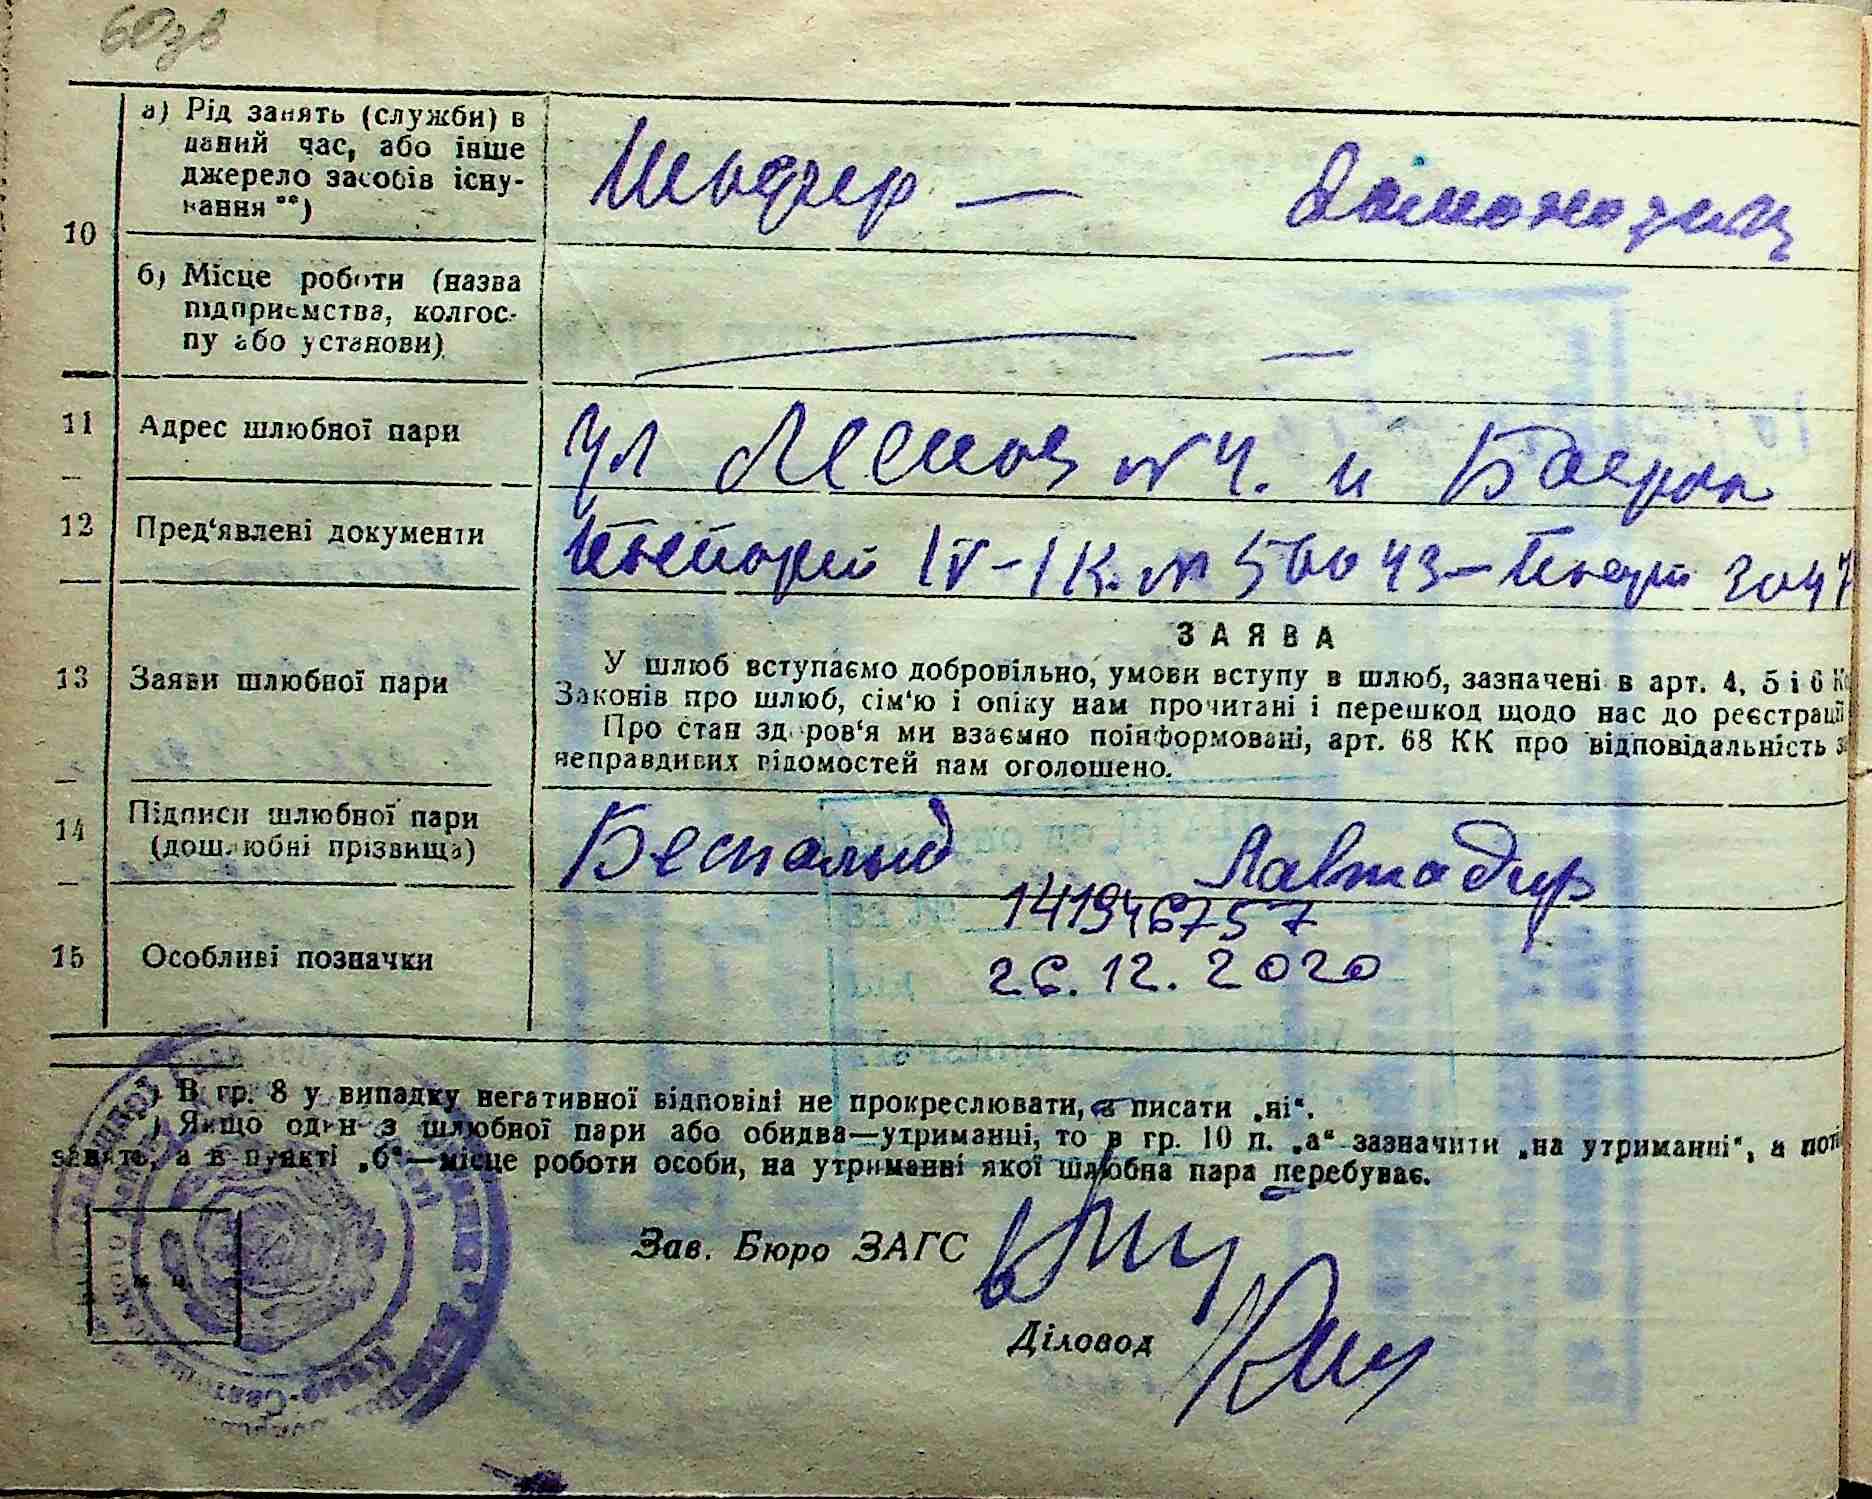 60зв
10
а) Рід занять (служби) в
даний час, або інше
джерело засобів існу-
вання **)
Шофер — Домохозяй
б) Місце роботи (назва
підприємства, колгос-
пу або установи)
11 Адрес шлюбної пари
ул Лесная №4. и Боярка
12 Пред'явлені документи
IV-ІК. № 56043 — 3047
13 Заяви шлюбної пари
ЗАЯВА
У шлюб вступаємо добровільно, умови вступу в шлюб, зазначені в арт. 4, 5 і 6 К
Законів про шлюб, сім'ю і опіку нам прочитані і перешкод щодо нас до реєстрації
Про стан здоров'я ми взаємно поінформовані, арт. 68 КК про відповідальність за
неправдивих відомостей нам оголошено.
14 Підписи шлюбної пари
(дошлюбні прізвища)
Беспалый
141946757
15 Особливі позначки
26.12.2020
) В гр. 8 у випадку негативної відповіді не прокреслювати, а писати „ні“.
) Якщо один з шлюбної пари або обидва—утриманці, то в гр. 10 п. „а“ зазначити „на утриманні“, а поті
заняте, а в пункті „б“—місце роботи особи, на утриманні якої шлюбна пара перебуває.
Зав. Бюро ЗАГС
Діловод
м. п.